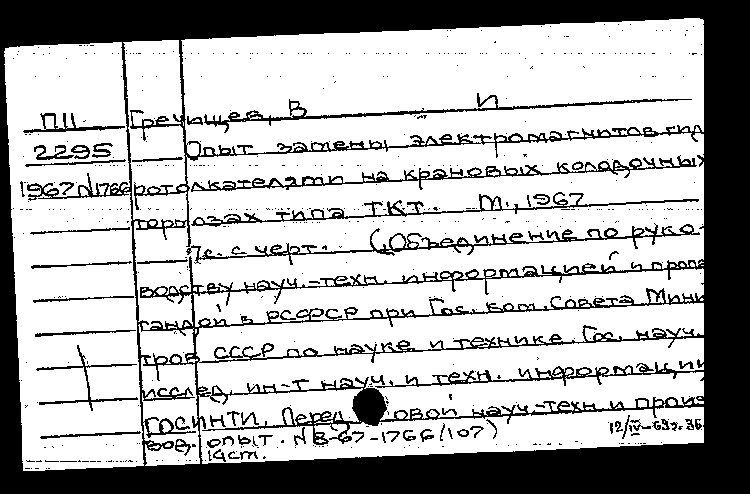 П11 Гречищев, В И
2295 Опыт замены электромагнитов гид
1967 N1766 ротолкателями на крановых колодочных
тормозах типа ТКТ. М., 1967
7с. с черт. (Объединение по руко-
водству науч.-техн. информацией и пропа
гандой в РСФСР при Гос. Ком. Совета Мини
тров СССР по науке и технике. Гос. науч.
исслед. ин-т науч. и техн. информации
ГОСИНТИ. Перед овой науч-техн и произ
вод. опыт. N 8-67-1766/107)
12/IV-69г. 36